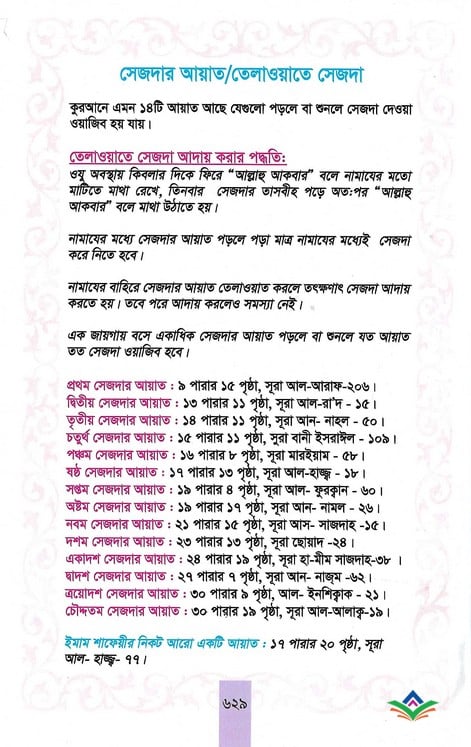 সেজদার আয়াত/তেলাওয়াতে সেজদা
কুরআনে এমন ১৪টি আয়াত আছে যেগুলো পড়লে বা শুনলে সেজদা দেওয়া
ওয়াজিব হয় যায়।
তেলাওয়াতে সেজদা আদায় করার পদ্ধতি:
ওযু অবস্থায় কিবলার দিকে ফিরে “আল্লাহু আকবার” বলে নামাযের মতো
মাটিতে মাথা রেখে, তিনবার সেজদার তাসবীহ পড়ে অত:পর “আল্লাহু
আকবার” বলে মাথা উঠাতে হয়।
নামাযের মধ্যে সেজদার আয়াত পড়লে পড়া মাত্র নামাযের মধ্যেই সেজদা
করে নিতে হবে।
নামাযের বাহিরে সেজদার আয়াত তেলাওয়াত করলে তৎক্ষণাৎ সেজদা আদায়
করতে হয়। তবে পরে আদায় করলেও সমস্যা নেই।
এক জায়গায় বসে একাধিক সেজদার আয়াত পড়লে বা শুনলে যত আয়াত
তত সেজদা ওয়াজিব হবে।
প্রথম সেজদার আয়াত : ৯ পারার ১৫ পৃষ্ঠা, সূরা আল-আরাফ-২০৬।
দ্বিতীয় সেজদার আয়াত : ১৩ পারার ১১ পৃষ্ঠা, সূরা আল-রা'দ - ১৫।
তৃতীয় সেজদার আয়াত : ১৪ পারার ১১ পৃষ্ঠা, সূরা আন- নাহল - ৫০।
চতুর্থ সেজদার আয়াত : ১৫ পারার ১১ পৃষ্ঠা, সূরা বানী ইসরাঈল - ১০৯।
পঞ্চম সেজদার আয়াত : ১৬ পারার ৮ পৃষ্ঠা, সূরা মারইয়াম - ৫৮।
ষষ্ঠ সেজদার আয়াত : ১৭ পারার ১৩ পৃষ্ঠা, সূরা আল-হাজ্ব - ১৮।
সপ্তম সেজদার আয়াত : ১৯ পারার ৪ পৃষ্ঠা, সূরা আল- ফুরক্বান - ৬০।
অষ্টম সেজদার আয়াত : ১৯ পারার ১৭ পৃষ্ঠা, সূরা আন- নামল - ২৬।
নবম সেজদার আয়াত : ২১ পারার ১৫ পৃষ্ঠা, সূরা আস- সাজদাহ -১৫।
দশম সেজদার আয়াত : ২৩ পারার ১৩ পৃষ্ঠা, সূরা ছোয়াদ -২৪।
একাদশ সেজদার আয়াত : ২৪ পারার ১৯ পৃষ্ঠা, সূরা হা-মীম সাজদাহ-৩৮ ।
দ্বাদশ সেজদার আয়াত : ২৭ পারার ৭ পৃষ্ঠা, সূরা আন- নাজ্‌ম -৬২।
ত্রয়োদশ সেজদার আয়াত : ৩০ পারার ৯ পৃষ্ঠা, আল- ইনশিক্বাক - ২১।
চৌদ্দতম সেজদার আয়াত : ৩০ পারার ১৯ পৃষ্ঠা, সূরা আল-আলাক্ব-১৯।
ইমাম শাফেয়ীর নিকট আরো একটি আয়াত : ১৭ পারার ২০ পৃষ্ঠা, সূরা
আল- হাজ্ব- ৭৭।
৬২৯